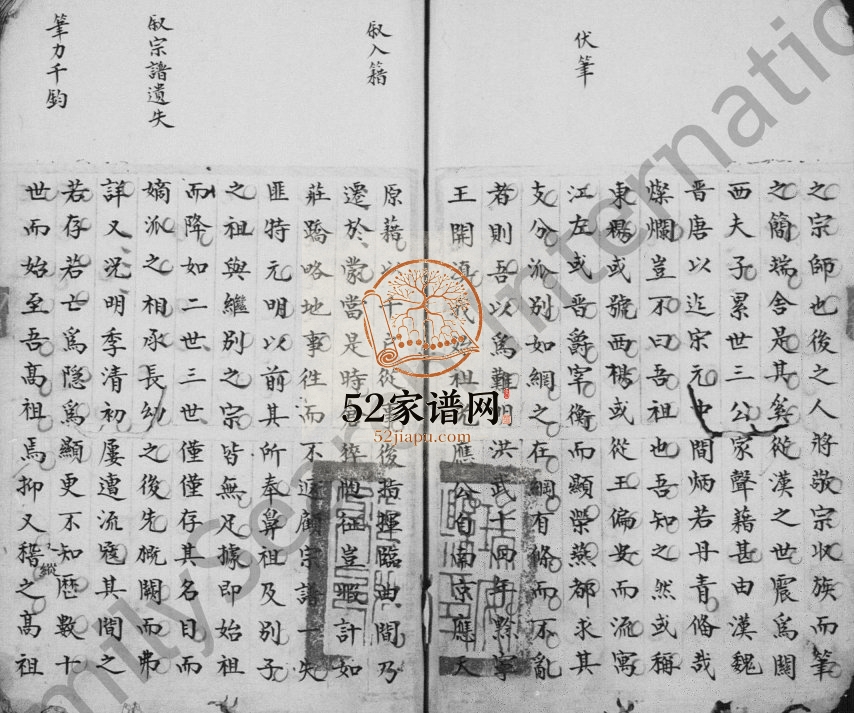 伏筆
之宗師也後之人將敬宗收族而筆
之簡端舍是其奚從漢之世震爲關
西夫子累世三公家聲藉甚由漢魏
晉唐以迄宋元中間炳若丹青偹哉
燦爛豈不曰吾祖也吾知之然或稱
東楊或號西楊或從王偏安而流寓
江左或晉爵宰衡而顯榮燕都求其
支分派别如網之在綱有條而不亂
者則吾以爲難明洪武十四年黔寧
王開滇我始祖應公自南京應天
叙入籍
叙宗譜遺失
筆力千鈞
原籍以千從軍後指揮臨曲間乃
遷於蒙當是時徂征豈暇計如
莊蹻略地事徃而不返顧宗譜一失
匪特元明以前其所奉鼻祖及别子
之祖與繼别之宗皆無足據即始祖
而降如二世三世僅僅存其名目而
嫡派之相承長幼之後先概闕而弗
詳又况明季清初屢遭流寇其間之
若存若亡爲隐爲顯更不知歷數十
世而始至吾髙祖焉抑又稽之髙祖
縱
52家谱网
52jiapu.com
FamilySearch International